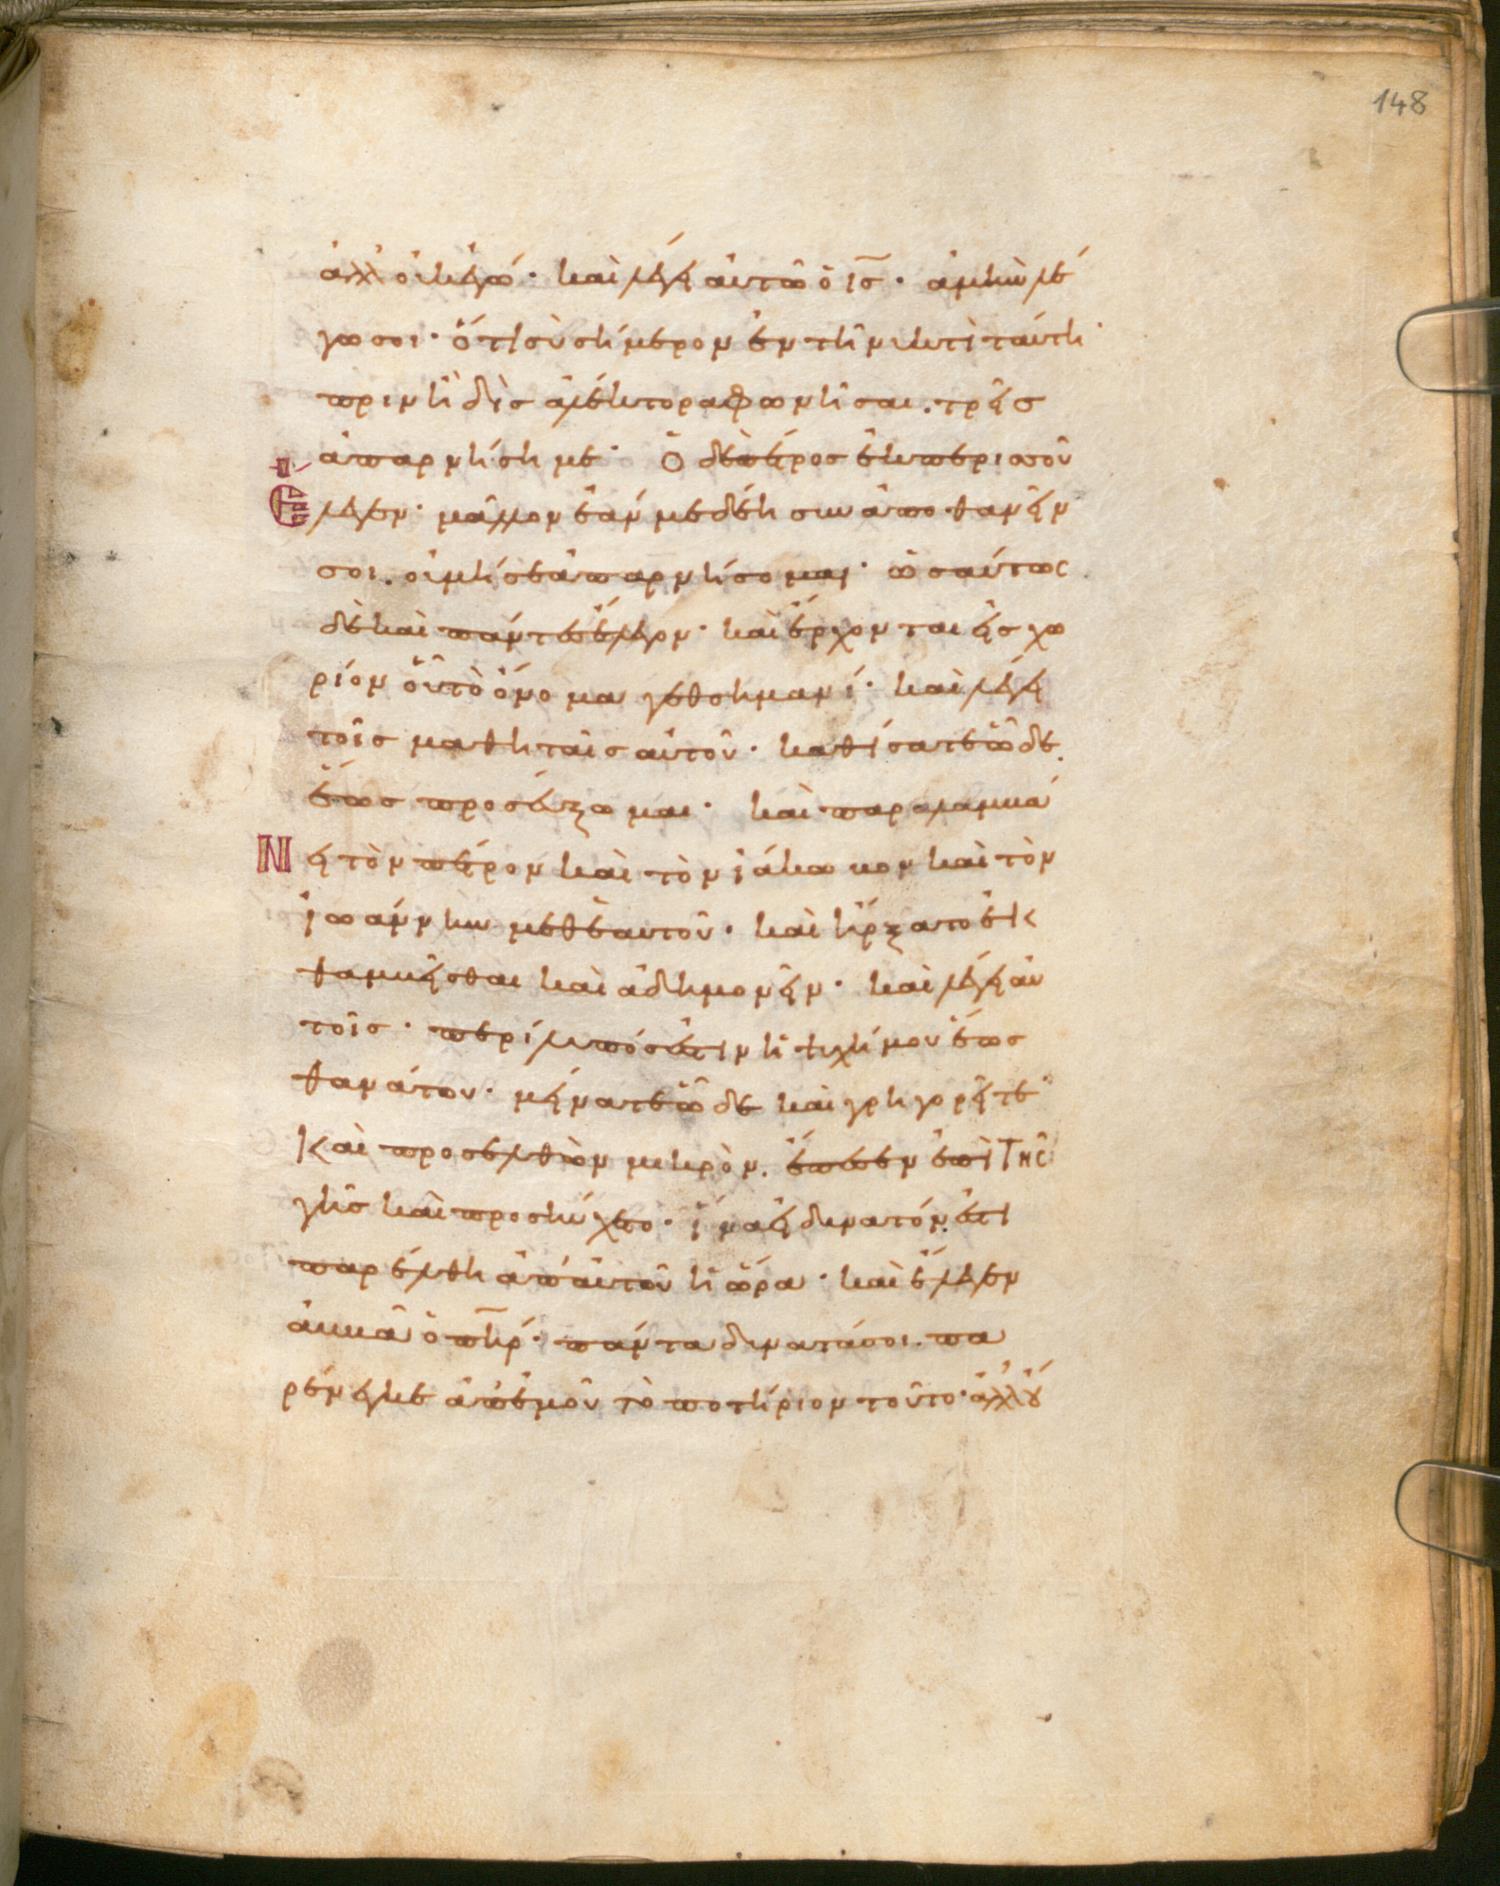 148
ἀλλ' οὐκ ἐγώ· καὶ λέγει αὐτῶ ὁ ις̅· ἀμὴν λέ
γω σοι· ὅτι σὺ σήμερον ἐν τῆ νυκτὶ ταύτη·
πρινὴ δὶς ἀλέκτορα φωνῆσαι. τρεῖσ
ἀπαρνήση με· Ὁ δὲ πέτρος ἐκ περισσοῦ
ἔλεγεν· μᾶλλον ἐάν με δέη συναποθανεῖν
σοι. οὐ μή σε ἀπαρνήσομαι· ὡσαύτως
δὲ καὶ πάντες ἔλεγον· καὶ ἔρχονται εἰς χω
ρίον οὗ τὸ ὄνομα γεθσημανί· καὶ λέγει
τοῖς μαθηταῖς αὐτοῦ· καθίσατε ὧδε.
ἕως προσεύξωμαι· καὶ παραλαμβά
Ν
ει τὸν πέτρον καὶ τὸν ἰάκωβον καὶ τὸν
ἰωάννην μεθ' ἑαυτοῦ· καὶ ἤρξατο ἐκ
θαμβεῖσθαι καὶ ἀδημονεῖν· καὶ λέγει αὐ
τοῖς· περίλυπός ἐστιν ἡ ψυχή μου ἕως
θανάτου· μείνατε ὧδε καὶ γρηγορεῖτε·
Καὶ προσελθὼν μικρὸν. ἔπεσεν ἐπὶ τῆς
γῆς καὶ προσηύχετο· ἵνα εἰ δυνατόν ἐστι
παρέλθη ἀπ' αὐτοῦ ἡ ὥρα· καὶ ἔλεγεν
ἀββᾶ ὁ πη̅ρ· πάντα δυνατά σοι. πα
ρένεγκε ἀπ' ἐμοῦ τὸ ποτήριον τοῦτο· ἀλλ' οὐ